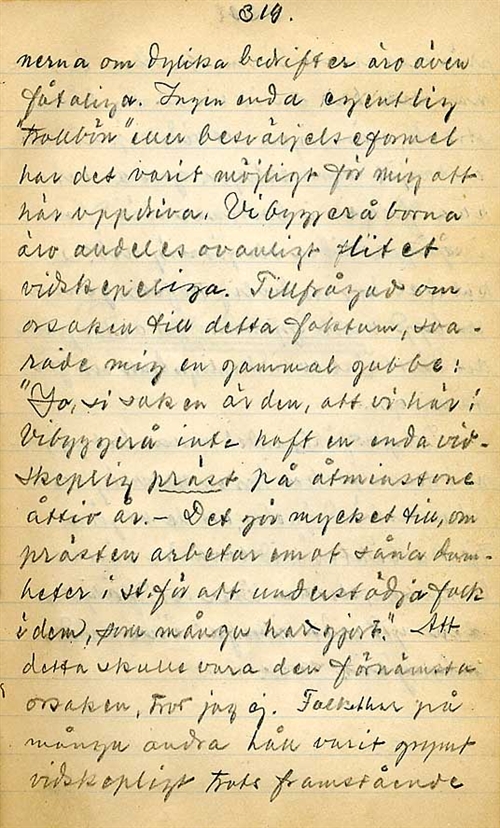 319.
nerna om dylika bedrifter äro även
fåtaliga. Ingen enda egentlig
"trollbön" eller besvärjelseformel
har det varit möjligt för mig att
här uppdriva. Vibyggeråborna
äro alldeles ovanligt litet
vidskepeliga. Tillfrågad om
orsaken till detta faktum, sva-
rade mig en gammal gubbe:
"Jo, si saken är den, att vi här i
Vibyggerå inte haft en enda vid-
skeplig präst på åtminstone
åttio år. – Det gör mycket till, om
prästen arbetar emot såna dum-
heter i st. för att understödja folk
i dem, som många har gjort." Att
detta skulle vara den förnämsta
orsaken, tror jag ej. Folket har på
många andra håll varit grymt
vidskepligt trots framstående